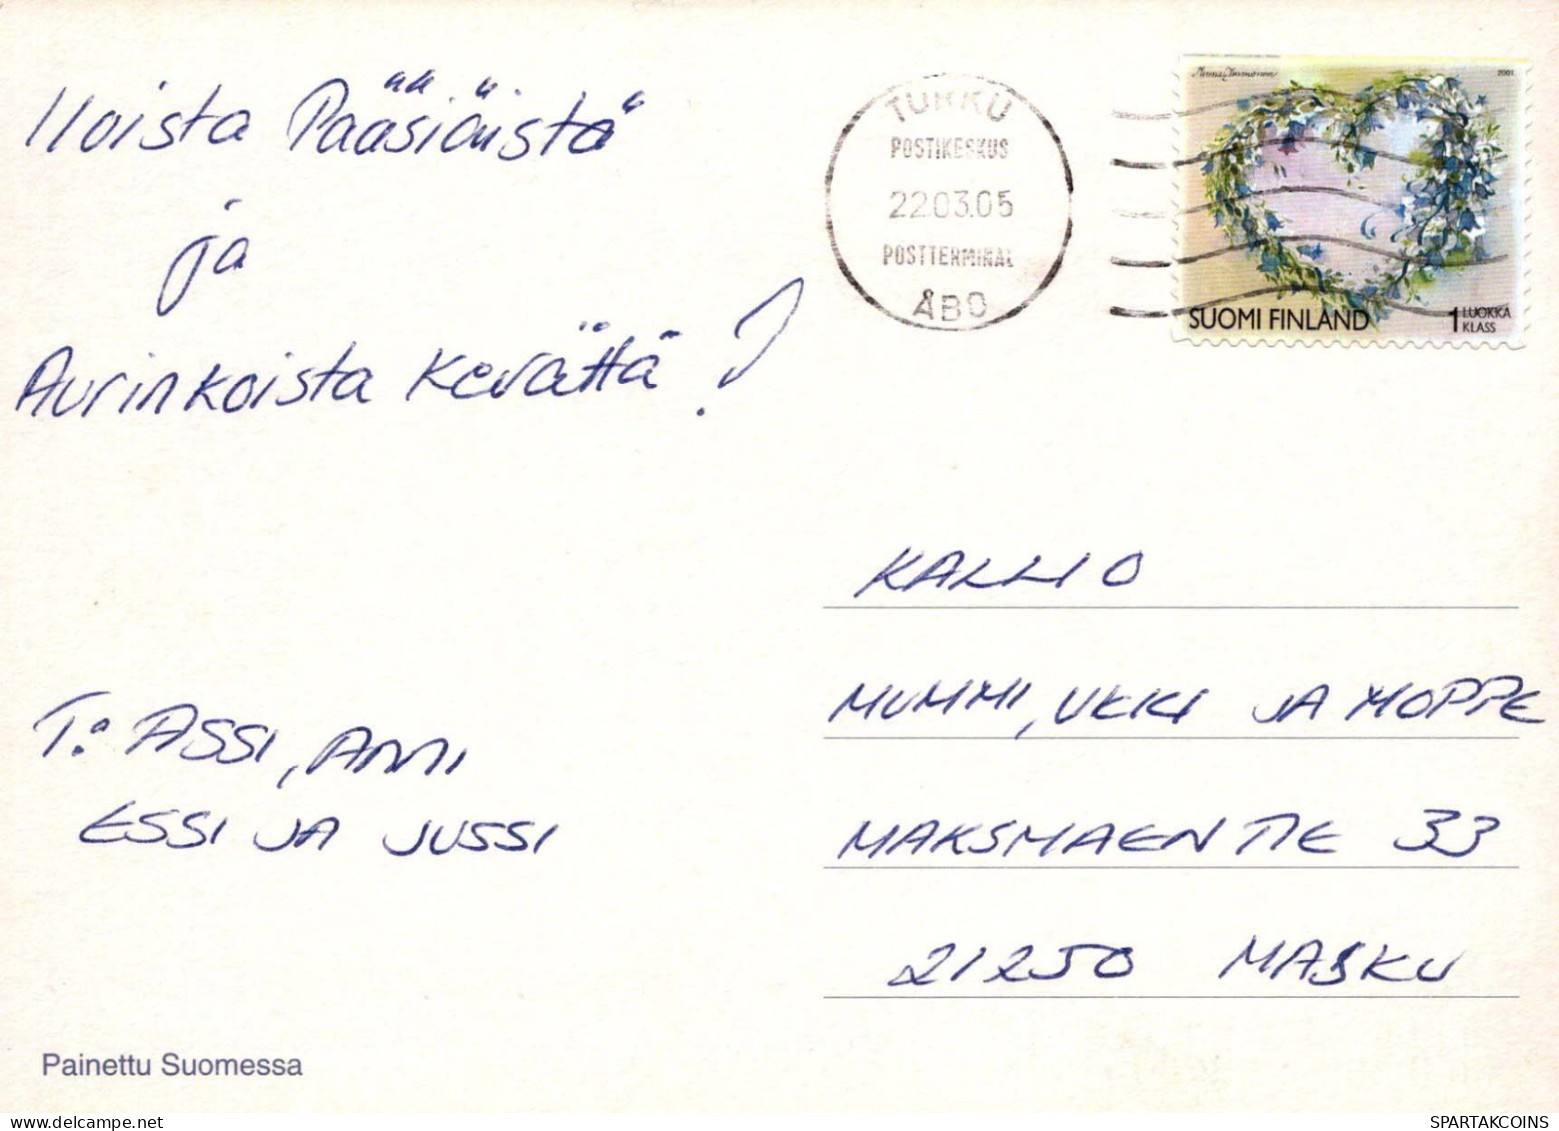 Iloista Pääsiäistä
ja
Aurinkoista Kevättä!
T: ASSI, AMI
ESSI JA JUSSI
Painettu Suomessa
TURKU
POSTIKESKUS
22.03.05
POSTTERMINAL
ÅBO
2001
SUOMI FINLAND
1 LUOKKA
KLASS
KALLIO
MUMMI, UKKI JA MOPPE
MAKSMAENTIE 33
21250 MASKU
SPARTAKCOINS